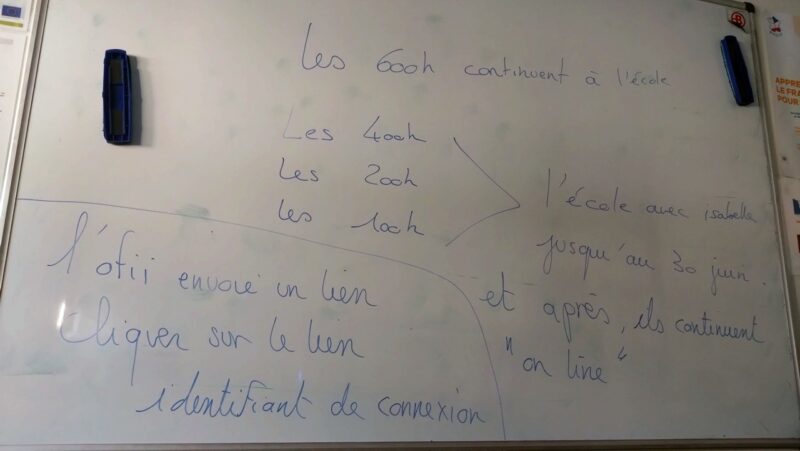 Les 600h continuent à l'école
Les 400h
Les 200h
Les 100h
l'école avec isabelle
jusqu'au 30 juin.
et après, ils continuent
"on line"
l'ofii envoie un lien
cliquer sur le lien
identifiant de connexion
APPRE
LE FRA
POUR